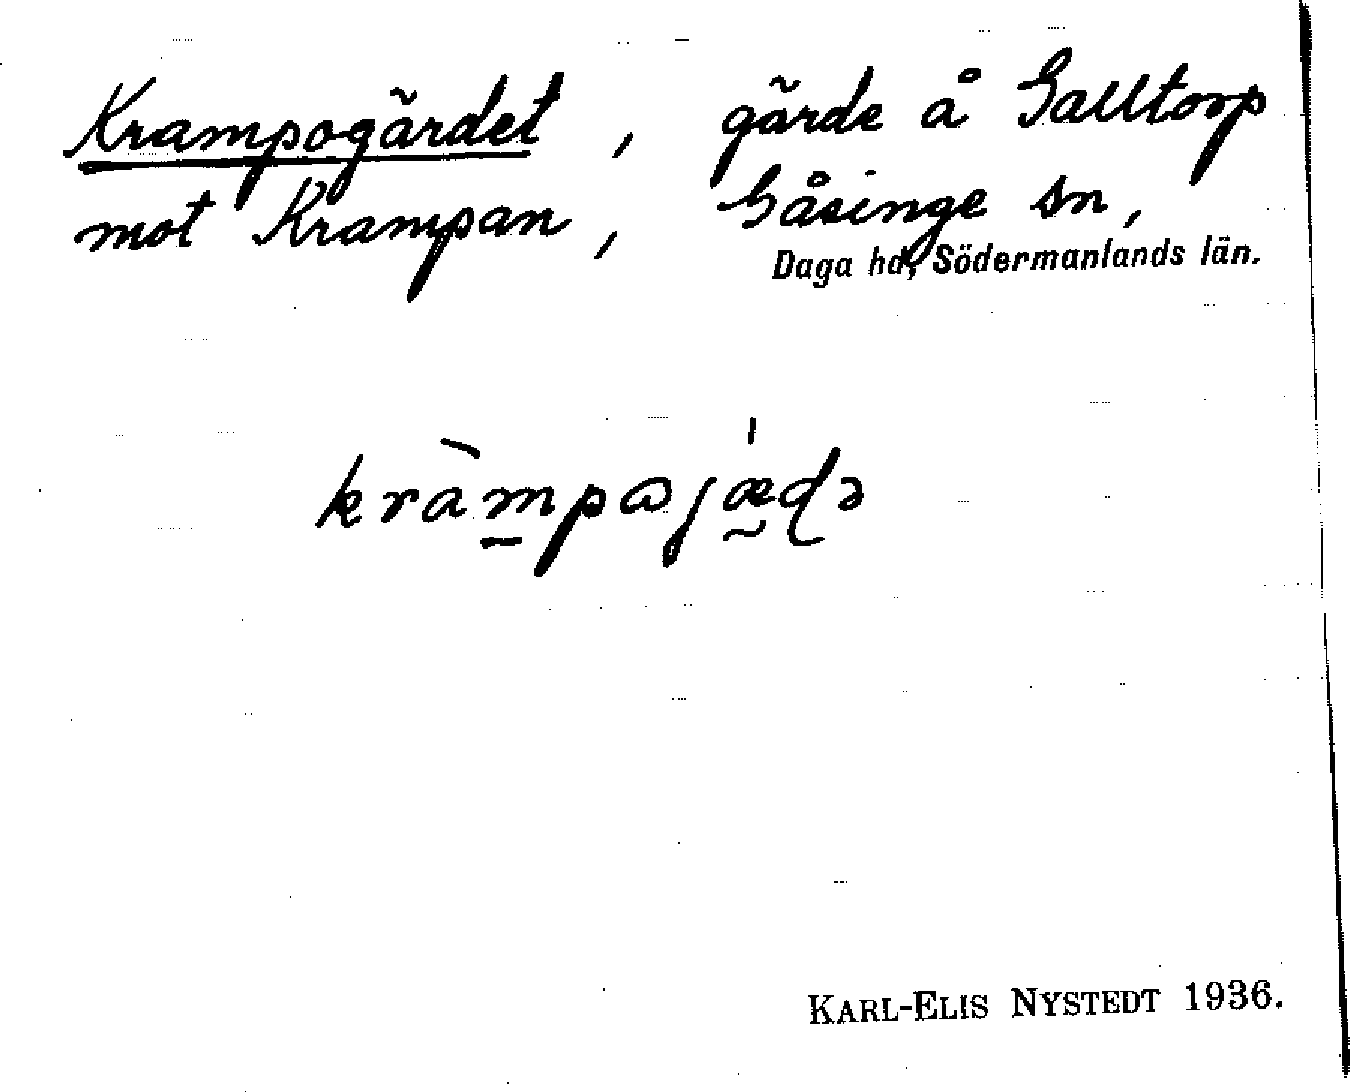 Krampogärdet, gärde å Galltorp
mot Krampan, Gåsinge sn,
Daga hd, Södermanlands län.
kràmpɷjæ̀ɖə
KARL-ELIS NYSTEDT 1936.